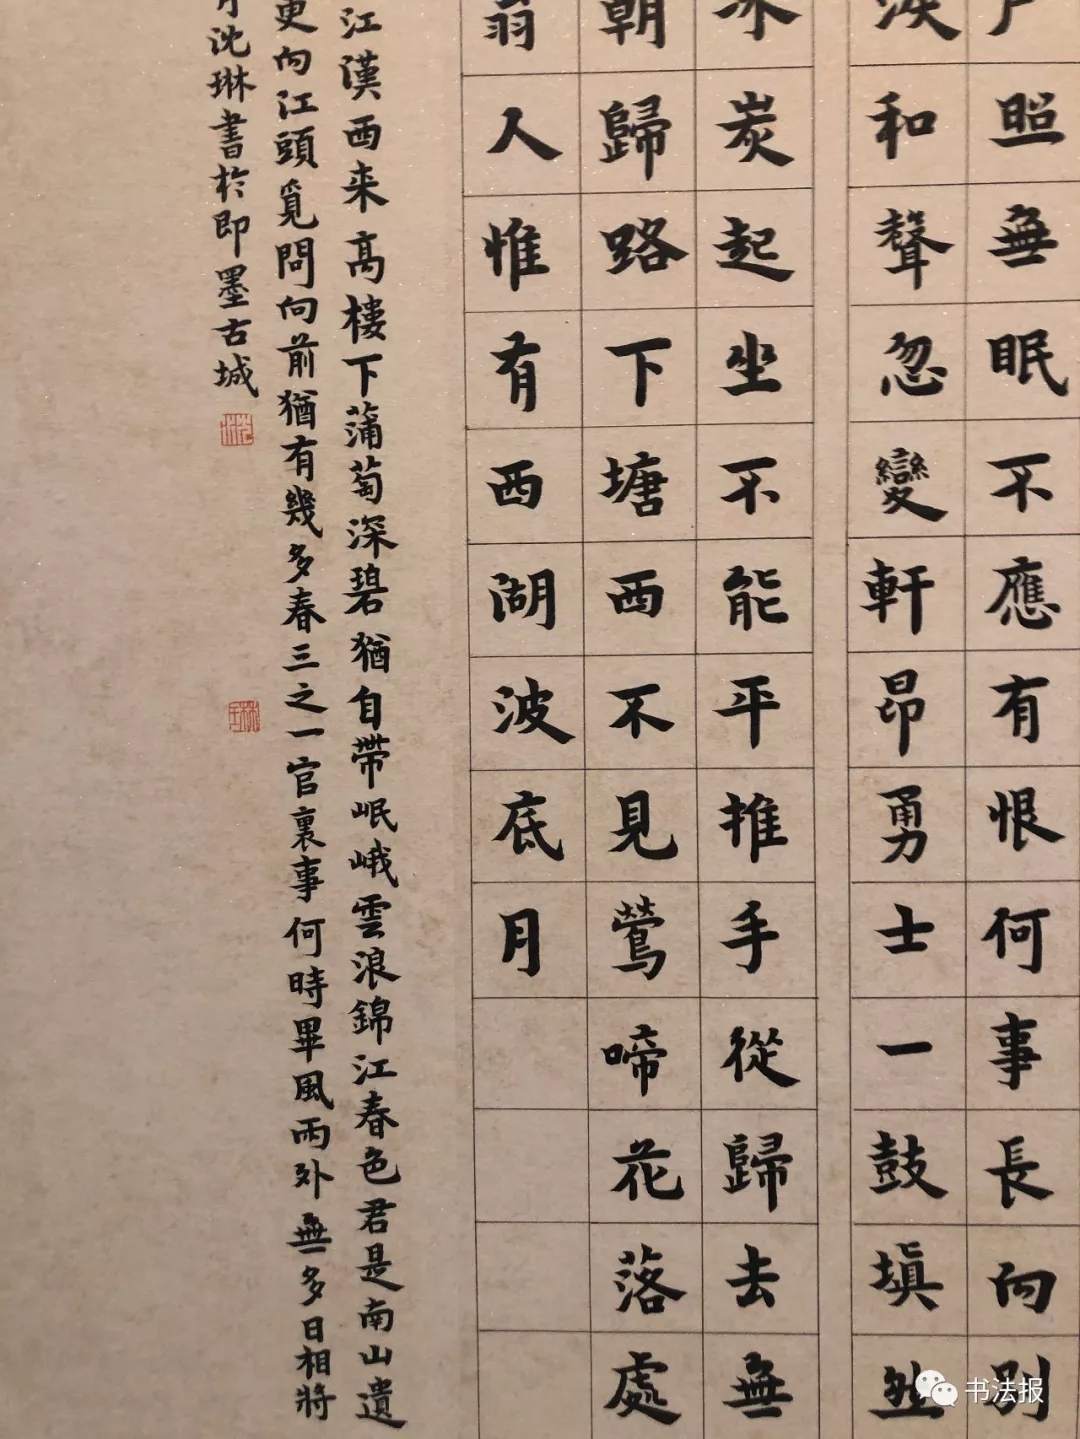 戶照無眠不應有恨何事長向別
淚和聲忽變軒昂勇士一鼓填然
冰炭起坐不能平推手從歸去無
朝歸路下塘西不見鶯啼花落處
翁人惟有西湖波底月
江漢西来高樓下蒲萄深碧猶自帶岷峨雲浪錦江春色君是南山遺
更向江頭覓問向前猶有幾多春三之一官裏事何時畢風雨外無多日相將
月沈琳書於即墨古城
书法报